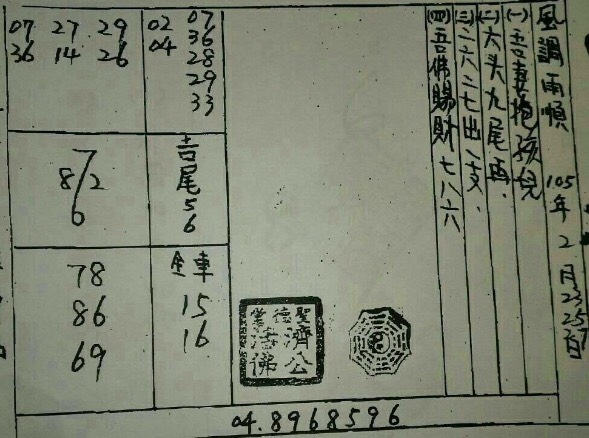 風調雨順 105年2月23.25.27日
(一)吾妻抱孩兒
(二)六头九尾再.
(三)二六二七出一支.
(四)吾佛賜財七八六
02 07
04 36
28
29
33
吉尾56
全車
15
16
07 27 29
36 14 26
7
8/2
6
78
86
69
聖德堂
濟公
活佛
04.8968596